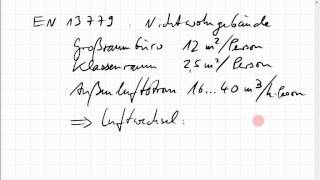 EN 13779 . Nichtwohngebäude
Großraumbüro 12 m²/Person
Klassenraum 2,5 m²/Person
Außenluftstrom 16...40 m³/h.Person
⇒ Luftwechsel: